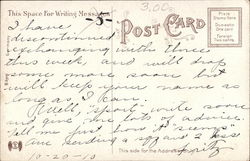 This Space For Writing Messages
-5-
3.00
POST CARD
Place Stamp Here
Domestic One cent
Foreign Two cents
I have
discontinued
exchanging with three
this week, and will drop
some more soon but
will keep your name so
long as I can.
Well, soon write soon
and give me lots of advice
Tell me just how it seems
are sending eggs
10-20-10
This side for the Address